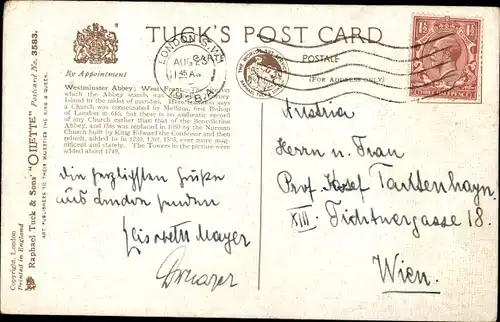 TUCK'S POST CARD
By Appointment
LONDON. S.W.1
AUG
1045AM
POSTALE
(FOR ADDRESS ONLY)
Postcard No. 3583.
"OILETTE"
Raphael Tuck & Sons'
ART PUBLISHERS TO THEIR MAJESTIES THE KING & QUEEN
Copyright, London
Printed in England
Westminster Abbey: West Front.
which the Abbey stands was
Island in the midst of marshes.
a Church was consecrated by Mellitus, first Bishop
of London in 616, but there is no authentic
record of any Church earlier than that of the Benedictine
Abbey, and this was replaced in 1050 by the Norman
Church built by King Edward the Confessor and then
rebuilt, added to in 1220, 1260, 1503, ever more mag-
nificent and stately. The Towers in the picture were
added about 1740.
die herzlichsten Grüße
aus London senden
Elisabeth Mayer
Austria
Herrn u. Frau
Prof. Josef Tautenhayn
XIII. Fichtnergasse 18.
Wien.